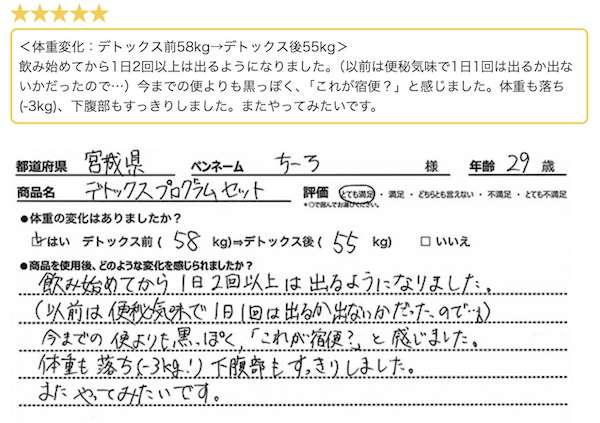 ＜体重変化：デトックス前58kg→デトックス後55kg＞
飲み始めてから1日2回以上は出るようになりました。（以前は便秘気味で1日1回は出るか出な
いかだったので…）今までの便よりも黒っぽく、「これが宿便？」と感じました。体重も落ち
(-3kg)、下腹部もすっきりしました。またやってみたいです。
都道府県 宮城県 ペンネーム ちーろ 様 年齢 29 歳
商品名 デトックスプログラムセット 評価 とても満足・満足・どちらとも言えない・不満足・とても不満足
*○で囲んでお選びください。
●体重の変化はありましたか？
はい デトックス前（ 58 kg)⇒デトックス後（ 55 kg) □ いいえ
●商品を使用後、どのような変化を感じられましたか？
飲み始めてから1日2回以上は出るようになりました。
(以前は便秘気味で1日1回は出るか出ないかだったので…)
今までの便よりも黒っぽく、「これが宿便？」と感じました。
体重も落ち(-3kg!)下腹部もすっきりしました。
またやってみたいです。